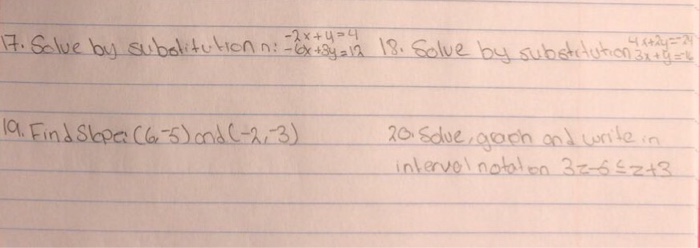 17. Solve by substitution n: -2x+y=4
-6x+3y=12
18. Solve by substitution 4x+2y=-24
3x+y=
19. Find Slope: (6,-5) and (-2,-3)
20. Solve, graph and write in
interval notation 3z-5≤z+3